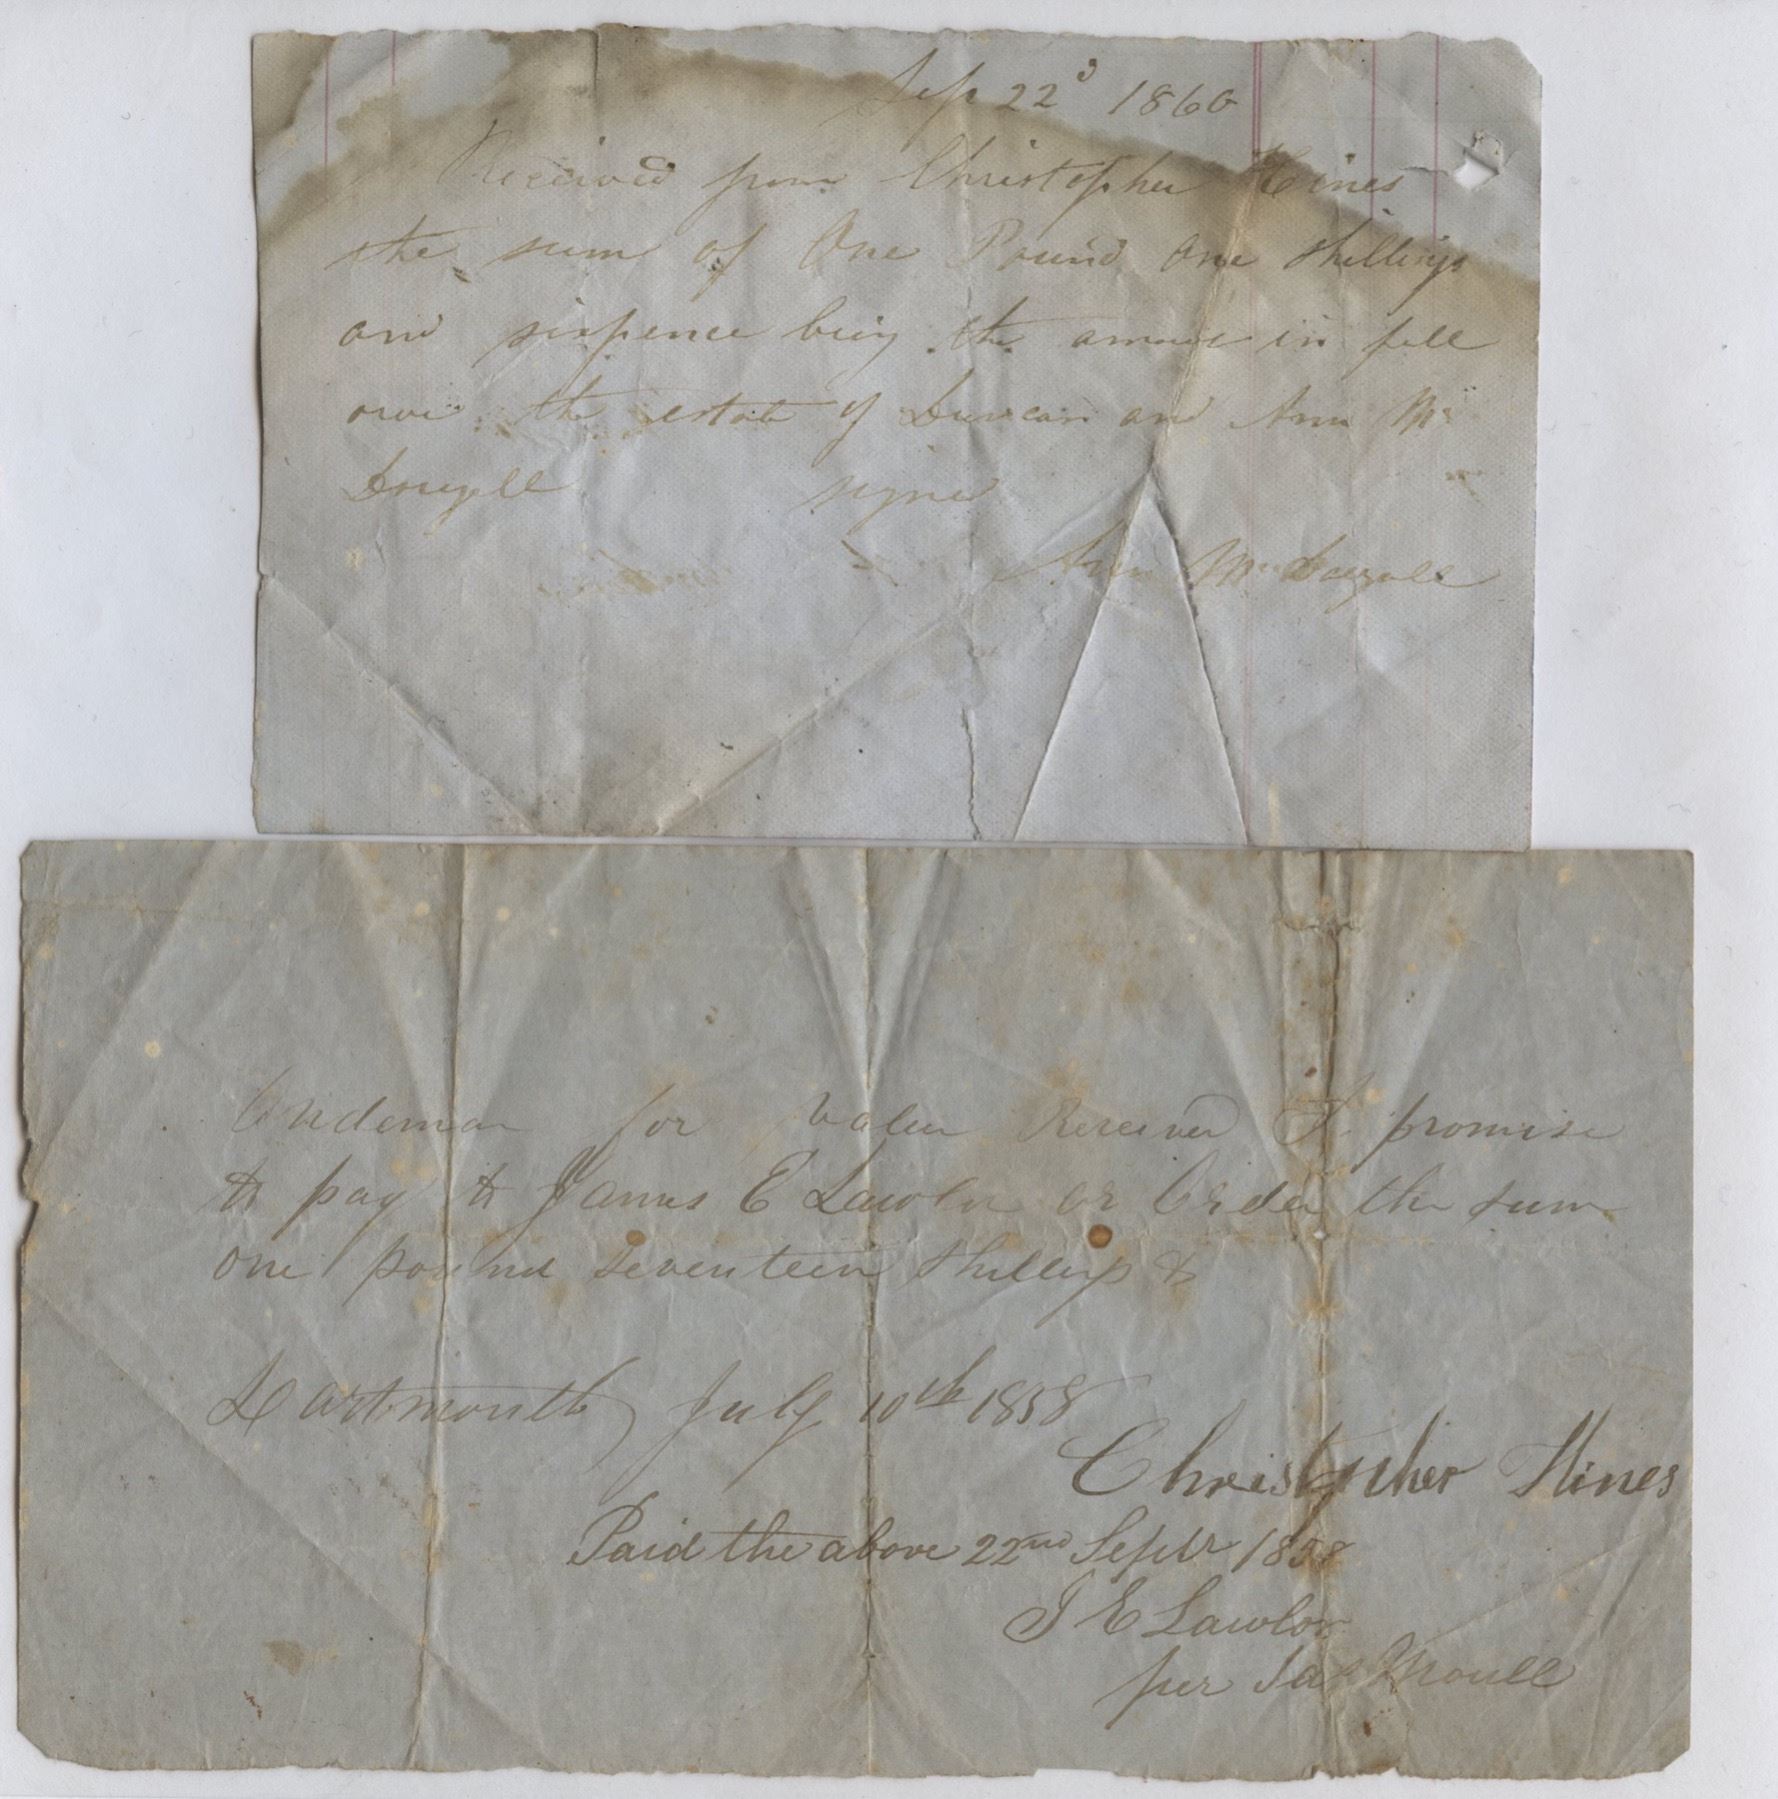 Sep 22d 1860
Received from Christopher Hines
the sum of One Pound One shillings
and sixpence being the amount in full
owe the estate of Duncan and Ann Mc
Dougall signed
Ann McDougall
Ondeman for value Received I promise
to pay to James E Lawlor or Order the sum
one pound seventeen shillings &
Dartmouth July 10th 1858
Christopher Hines
Paid the above 22nd Septr 1858
J E Lawlor
per Jas Moull